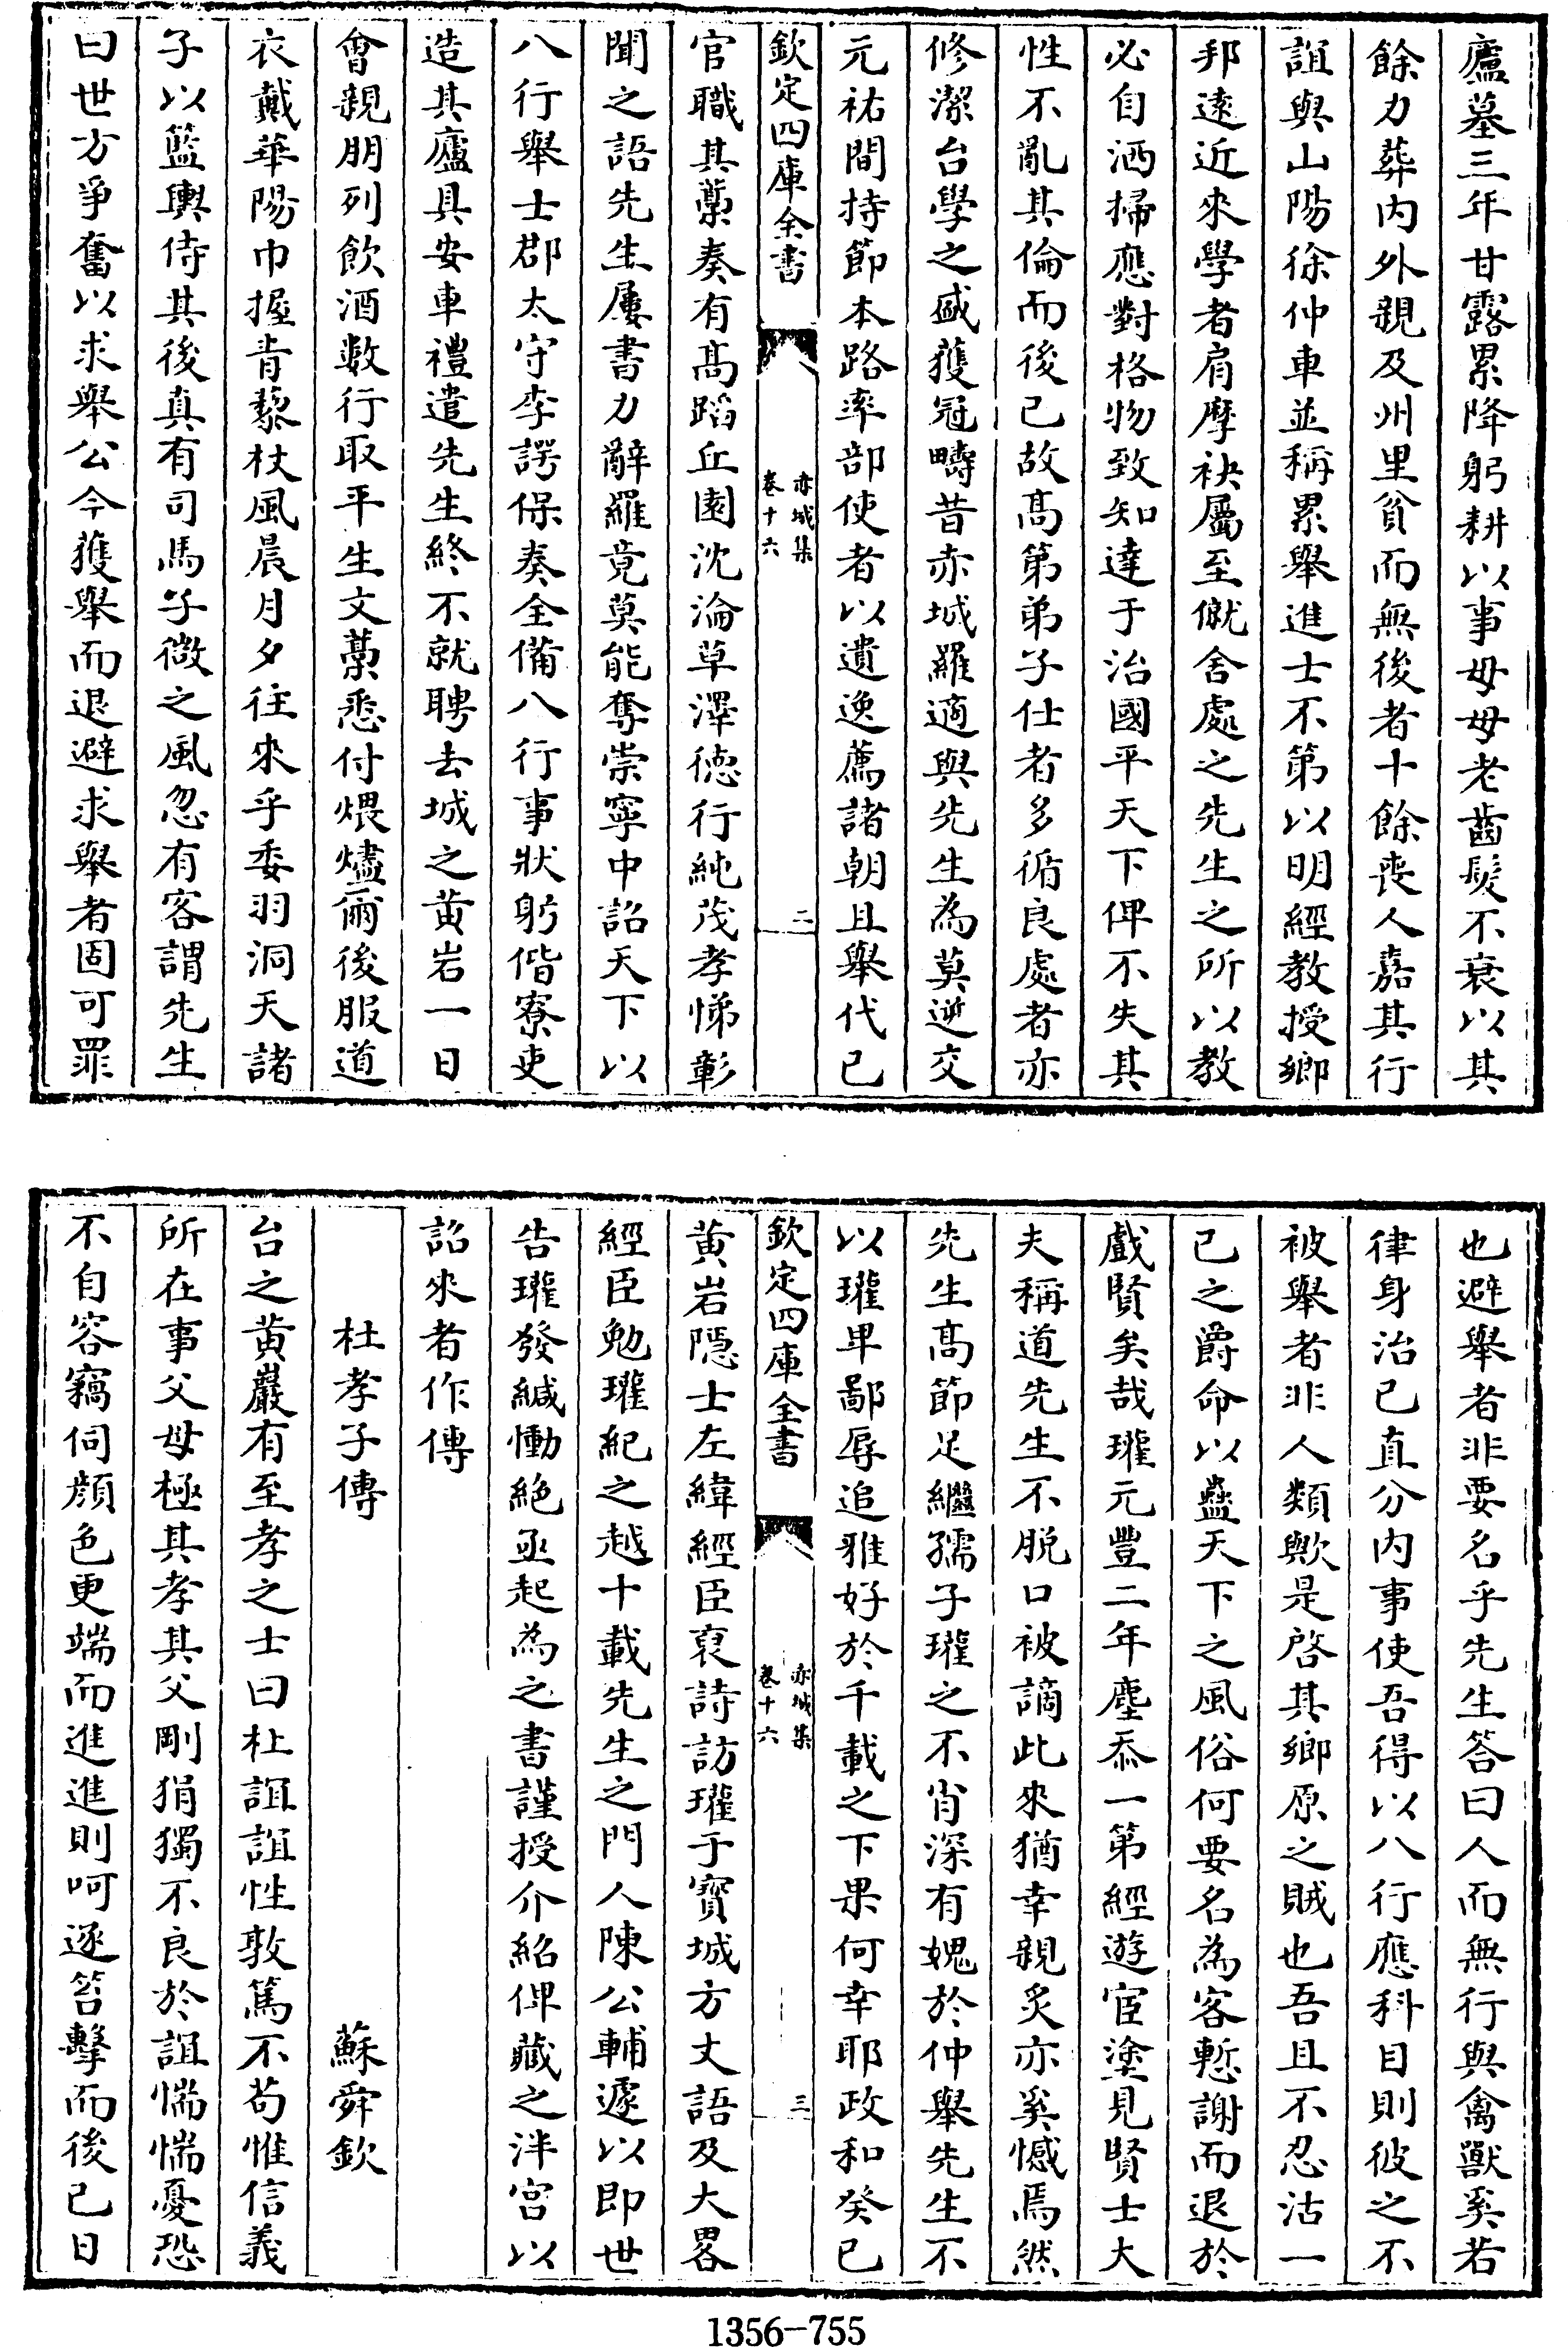 廬墓三年甘露累降躬耕以事母母老齒髮不衰以其
餘力葬内外親及州里貧而無後者十餘喪人嘉其行
誼與山陽徐仲車並稱累舉進士不第以明經教授鄉
邦逺近來學者肩摩袂屬至僦舍處之先生之所以教
必自洒掃應對格物致知達于治國平天下俾不失其
性不亂其倫而後已故髙第弟子仕者多循良處者亦
修潔台學之盛獲冠疇昔亦城羅適與先生為莫逆交
元祐間持節本路率部使者以遺逸薦諸朝且舉代已
欽定四庫全書
赤城集
卷十六
二
官職其藁奏有髙蹈丘園沈淪草澤徳行純茂孝悌彰
聞之語先生屢書力辭羅竟莫能奪崇寧中詔天下以
八行舉士郡太守李諤保奏全備八行事狀躬偕寮吏
造其廬具安車禮遣先生終不就聘去城之黄岩一日
會親朋列飲酒數行取平生文藁悉付煨燼爾後服道
衣戴華陽巾握青藜杖風晨月夕往來乎委羽洞天諸
子以籃輿侍其後真有司馬子微之風忽有客謂先生
曰世方爭奮以求舉公今獲舉而退避求舉者固可罪
也避舉者非要名乎先生答曰人而無行與禽獸奚若
律身治已直分内事使吾得以八行應科目則彼之不
被舉者非人類歟是啓其鄉原之賊也吾且不忍沽一
已之爵命以蠱天下之風俗何要名為客慙謝而退於
戲賢矣哉瓘元豐二年塵忝一第經遊宦塗見賢士大
夫稱道先生不脱口被謫此來猶幸親炙亦奚憾焉然
先生髙節足繼孺子瓘之不肖深有媿於仲舉先生不
以瓘卑鄙辱追雅好於千載之下果何幸耶政和癸已
欽定四庫全書
赤城集
卷十六
三
黄岩隱士左緯經臣裒詩訪瓘于寳城方丈語及大畧
經臣勉瓘紀之越十載先生之門人陳公輔遽以即世
告瓘發緘慟絶亟起為之書謹授介紹俾藏之泮宫以
詔來者作傳
杜孝子傳　蘇舜欽
台之黄巖有至孝之士曰杜誼誼性敦篤不茍惟信義
所在事父母極其孝其父剛狷獨不良於誼惴惴憂恐
不自容竊伺顔色更端而進進則呵逐笞擊而後已日
1356-755